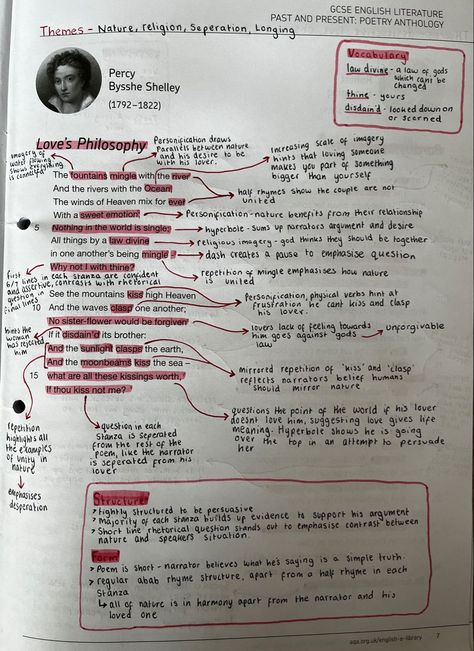 GCSE ENGLISH LITERATURE
PAST AND PRESENT: POETRY ANTHOLOGY
Themes - Nature, religion, Seperation, Longing
Vocabulary
law divine - a law of gods
which cant be
changed
thine - yours
disdain'd - looked down on
or scorned
Percy
Bysshe Shelley
(1792–1822)
Love's Philosophy
imagery of
water flowing
shows everything
is connected
Personification draws
Parallels between nature
and his desire to be
with his lover.
increasing scale of imagery
hints that loving someone
makes you part of something
bigger than yourself
The fountains mingle with the river
And the rivers with the Ocean,
The winds of Heaven mix for ever
With a sweet emotion;
5 Nothing in the world is single;
All things by a law divine
in one another's being mingle –
Why not I with thine?
half rhymes show the couple are not
united
Personification - nature benefits from their relationship
hyperbole - sums up narrators argument and desire
religious imagery - god thinks they should be together
dash creates a pause to emphasise question
repetition of mingle emphasises how nature
is united
first
6/7 lines in each stanza are confident
and assertive, contrasts with rhetorical
question in
final lines
See the mountains kiss high Heaven
10 And the waves clasp one another;
No sister-flower would be forgiven
If it disdain'd its brother:
And the sunlight clasps the earth,
And the moonbeams kiss the sea –
15 what are all these kissings worth,
If thou kiss not me?
Personification, physical verbs hint at
frustration he cant kiss and clasp
his lover.
lovers lack of feeling towards
him goes against gods
law
unforgivable
hints the
woman has
rejected
him
mirrored repetition of 'kiss' and 'clasp'
reflects narrators belief humans
should mirror nature
questions the point of the world if his lover
doesn't love him, suggesting love gives life
meaning. Hyperbole shows he is going
over the top in an attempt to persuade
her
repetition
highlights all
the examples
of unity in
nature
emphasises
desperation
question in each
Stanza is seperated
from the rest of the
poem, like the narrator
is seperated from his
lover
Structure
> tightly structured to be persuasive
> Majority of each stanza builds up evidence to support his argument
> Short line rhetorical question stands out to emphasise contrast between
nature and speakers situation.
Form
> Poem is short - narrator believes what he's saying is a simple truth.
> regular abab rhyme structure, apart from a half rhyme in each
Stanza
all of nature is in harmony apart from the narrator and his
loved one
aqa.org.uk/english-e-library 7